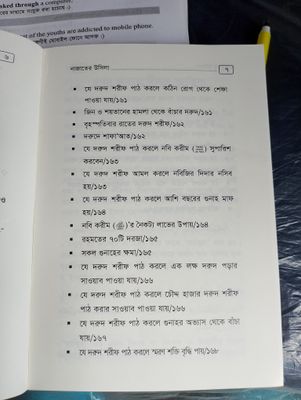 ked through a computer.
t of the youths are addicted to mobile phone.
৬
নাজাতের উসিলা
৭
যে দরুদ শরীফ পাঠ করলে কঠিন রোগ থেকে শেফা
পাওয়া যায়/১৬১
জিন ও শয়তানের হামলা থেকে বাঁচার দরুদ/১৬১
বৃহস্পতিবার রাতের দরুদ শরীফ/১৬২
দরুদে শাফা'আত/১৬২
যে দরুদ শরীফ পাঠ করলে নবি করীম (ﷺ) সুপারিশ
করবেন/১৬৩
যে দরুদ শরীফ আমল করলে নবিজির দিদার নসিব
হয়/১৬৩
যে দরুদ শরীফ পাঠ করলে আশি বছরের গুনাহ মাফ
হয়/১৬৪
নবি করীম (ﷺ)'র নৈকট্য লাভের উপায়/১৬৪
রহমতের ৭০টি দরজা/১৬৫
সকল গুনাহের ক্ষমা/১৬৫
যে দরুদ শরীফ পাঠ করলে এক লক্ষ দরুদ পড়ার
সাওয়াব পাওয়া যায়/১৬৬
যে দরুদ শরীফ পাঠ করলে চৌদ্দ হাজার দরুদ শরীফ
পাঠ করার সাওয়াব পাওয়া যায়/১৬৬
যে দরুদ শরীফ পাঠ করলে গুনাহর অভ্যাস থেকে বাঁচা
যায়/১৬৭
যে দরুদ শরীফ পাঠ করলে স্মরণ শক্তি বৃদ্ধি পায়/১৬৮